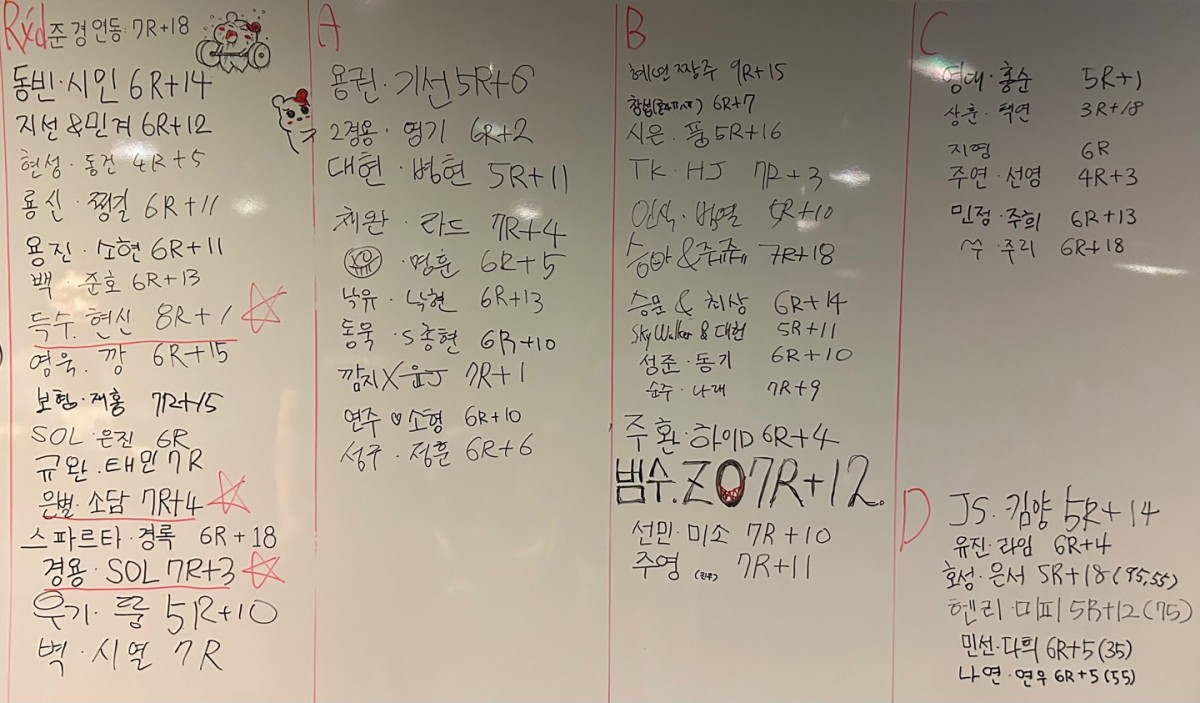 Rx'd 준경 연동 7R+18
동빈·시인 6R+14
지선&민겨 6R+12
현성·동건 4R+5
룡신·쩡길 6R+11
용진·소현 6R+11
백·준호 6R+13
득수·현신 8R+1
영욱·깡 6R+15
보험·재홍 7R+15
SOL·은진 6R
규완·태민 7R
은별·소담 7R+4
스파르타·경록 6R+18
경용·SOL 7R+3
우기·룽 5R+10
벽·시열 7R
A
용권·기선 5R+6
2경용·영기 6R+2
대현·병현 5R+11
채완·라드 7R+4
·명훈 6R+5
낙유·낙현 6R+13
동욱·S종현 6R+10
깜지X윤J 7R+1
연주♡소형 6R+10
성구·정훈 6R+6
B
혜연 짱주 9R+15
6R+7
시은·풍 5R+16
TK·HJ 7R+3
인식·범열 5R+10
7R+18
승문&최상 6R+14
Sky Walker&대헌 5R+11
성준·동기 6R+10
순주·나래 7R+9
주환·하이D 6R+4
범수.ZO 7R+12.
선민·미소 7R+10
주영 7R+11
C
영대·홍순 5R+1
상훈·택연 3R+18
지영 6R
주연·선영 4R+3
민정·주희 6R+13
쑤·주리 6R+18
D
JS·김양 5R+14
유진·라임 6R+4
효성·은서 5R+18(95,55)
헨리·미피 5R+12(75)
민선·다희 6R+5(35)
나연·연우 6R+5(55)